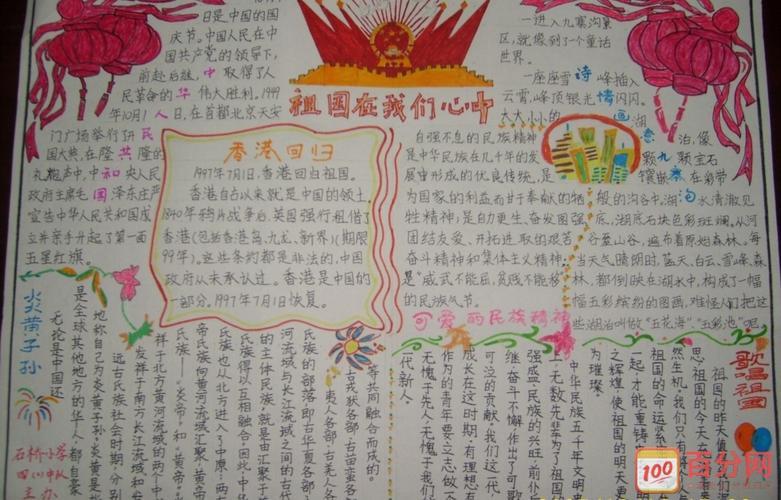 日是中国的国
庆节。中国人民在中
国共产党的领导下,
前赴后继,中取得了人
民革命的华伟大胜利。1949
年10月1人日,在首都北京天安
门广场举行开民
国大典,在隆共隆的
礼炮声中,中和央人民
政府主席毛国泽东庄严
宣告中华人民共和国成
立并亲手升起了第一面
五星红旗。
祖国在我们心中
香港回归
1997年7月1日,香港回归祖国。
香港自古以来就是中国的领土。
1840年鸦片战争后,英国强行租借了
香港(包括香港岛、九龙、新界)(期限
99年)。这些条约都是非法的,中国
政府从未承认过。香港是中国的
一部分,1997年7月1日恢复。
自强不息的民族精神
是中华民族在几千年的发
展中形成的优良传统,是
为国家的利益而甘于奉献的牺
牲精神;是自力更生、奋发图强
团结友爱、开拓进取的艰苦
奋斗精神和集体主义精神;
是“威武不能屈,贫贱不能移”
的民族气节。
可爱的民族精神
一进入九寨沟景
区,就像到了一个童话
世界。
一座座雪诗峰插入
云霄,峰顶银光情闪闪。
大大小小的画湖
意泊,像
颗九颗宝石
镶嵌寨在彩带
般的沟谷中,湖沟水清澈见
底,湖底石块色彩斑斓。从河
谷至山谷,遍布着原始森林。每
当天气晴朗时,蓝天、白云、雪峰、森
林,都倒映在湖水中,构成了一幅
幅五彩缤纷的图画,难怪人们把这
些湖泊叫做“五花海”“五彩池”呢
炎黄子孙
无论是中国还
是全球其他地方的华人,都自豪
地称自己为炎黄子孙。炎黄是
远古氏族社会时期,分别
发祥于南方长江流域和
祥于北方黄河流域的两个
氏族——“炎帝”和“黄帝”
帝氏族向黄河流域汇聚,
氏族也从北方进入了中原,两
氏族得以互相融合,因此,中华
的主体民族,就是由汇聚于
河流域与长江流域之间的古代
氏族的部落即古华夏各部
等共同融合而成的。
歌唱祖国
祖国的昨天值
思,祖国的今天
然生机,我们只有
祖国的命运紧
一起,才能重铸
之辉煌,使祖国的明天更
为璀璨。
中华民族五千年文明
上,无数先辈为了祖国
强盛,民族的兴旺,前仆
继,奋斗不懈,作出了可歌
可泣的贡献。我们这一代
成长在这时期,有理想
作为的青年要立志做个
无愧于先人,无愧于我们
代新人。
石桥小学
四(1)中队
主办
100
百分网